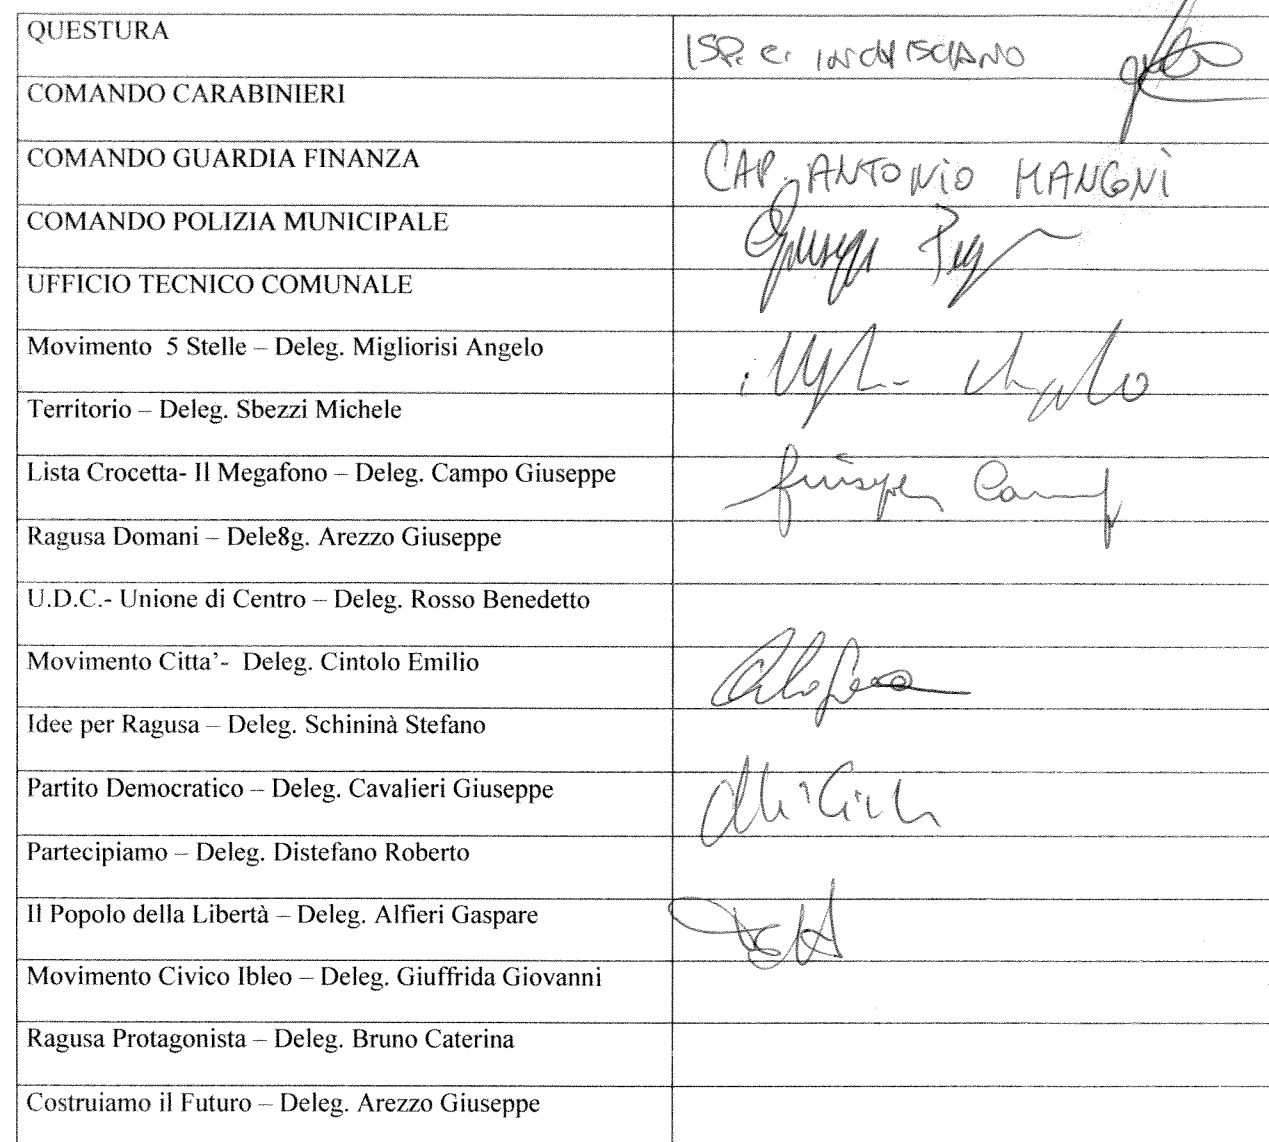 QUESTURA ISP. C.
COMANDO CARABINIERI
COMANDO GUARDIA FINANZA CAP. ANTONIO MANGNÌ
COMANDO POLIZIA MUNICIPALE Giuseppe
UFFICIO TECNICO COMUNALE
Movimento 5 Stelle – Deleg. Migliorisi Angelo
Territorio – Deleg. Sbezzi Michele
Lista Crocetta- Il Megafono – Deleg. Campo Giuseppe Giuseppe Campo
Ragusa Domani – Dele8g. Arezzo Giuseppe
U.D.C.- Unione di Centro – Deleg. Rosso Benedetto
Movimento Citta’- Deleg. Cintolo Emilio
Idee per Ragusa – Deleg. Schininà Stefano
Partito Democratico – Deleg. Cavalieri Giuseppe
Partecipiamo – Deleg. Distefano Roberto
Il Popolo della Libertà – Deleg. Alfieri Gaspare
Movimento Civico Ibleo – Deleg. Giuffrida Giovanni
Ragusa Protagonista – Deleg. Bruno Caterina
Costruiamo il Futuro – Deleg. Arezzo Giuseppe